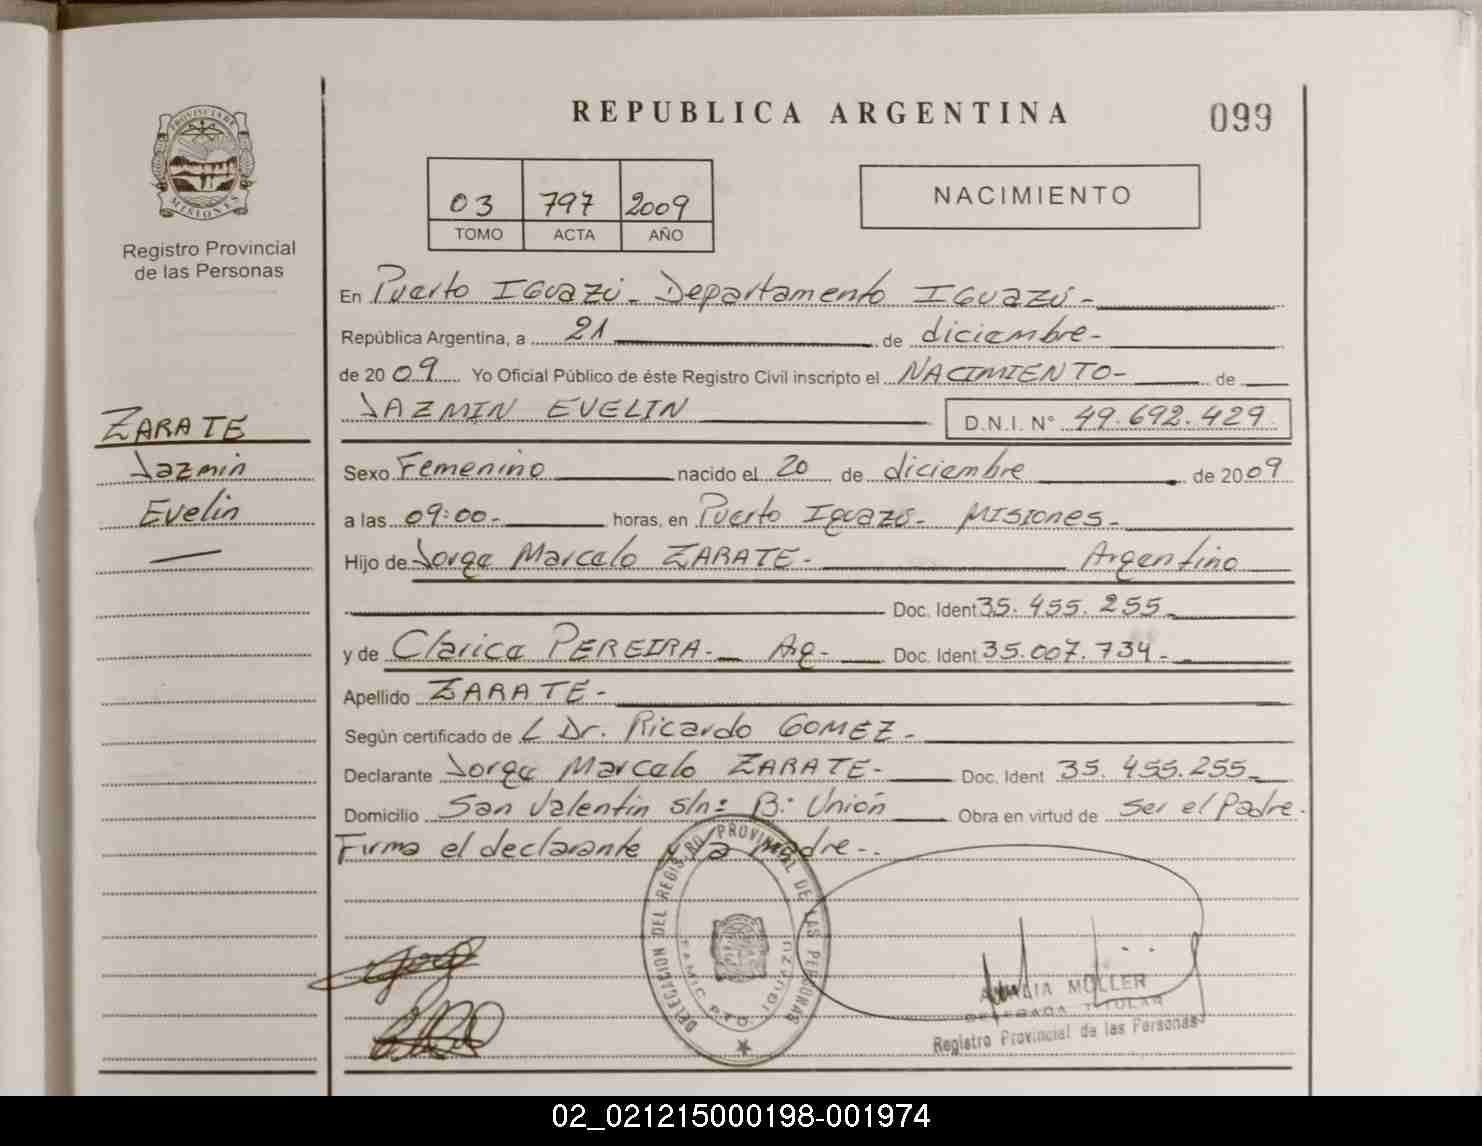 REPUBLICA ARGENTINA
099
PROVINCIA DE
MISIONES
Registro Provincial
de las Personas
03 797 2009
TOMO ACTA AÑO
NACIMIENTO
En Puerto IGuazú - Departamento IGuazú -
República Argentina, a 21 de diciembre -
de 2009 Yo Oficial Público de éste Registro Civil inscripto el NACIMIENTO - de
JAZMIN EVELIN D.N.I. N° 49.692.429
ZARATE
Jazmin
Evelin
Sexo Femenino nacido el 20 de diciembre de 2009
a las 09:00 - horas, en Puerto Iguazú - MISIONES -
Hijo de Jorge Marcelo ZARATE - Argentino
Doc. Ident 35.455.255
y de Clarica PEREIRA - Ag - Doc. Ident 35.007.734 -
Apellido ZARATE -
Según certificado de L Dr. Ricardo GOMEZ -
Declarante Jorge Marcelo ZARATE - Doc. Ident 35.455.255
Domicilio San Valentín s/n: B: Unión Obra en virtud de Ser el Padre.
Firma el declarante y la madre -
DELEGACION DEL REGISTRO PROVINCIAL DE LAS PERSONAS
PTO. IGUAZU
MÜLLER
DELEGADA TITULAR
Registro Provincial de las Personas
02_021215000198-001974